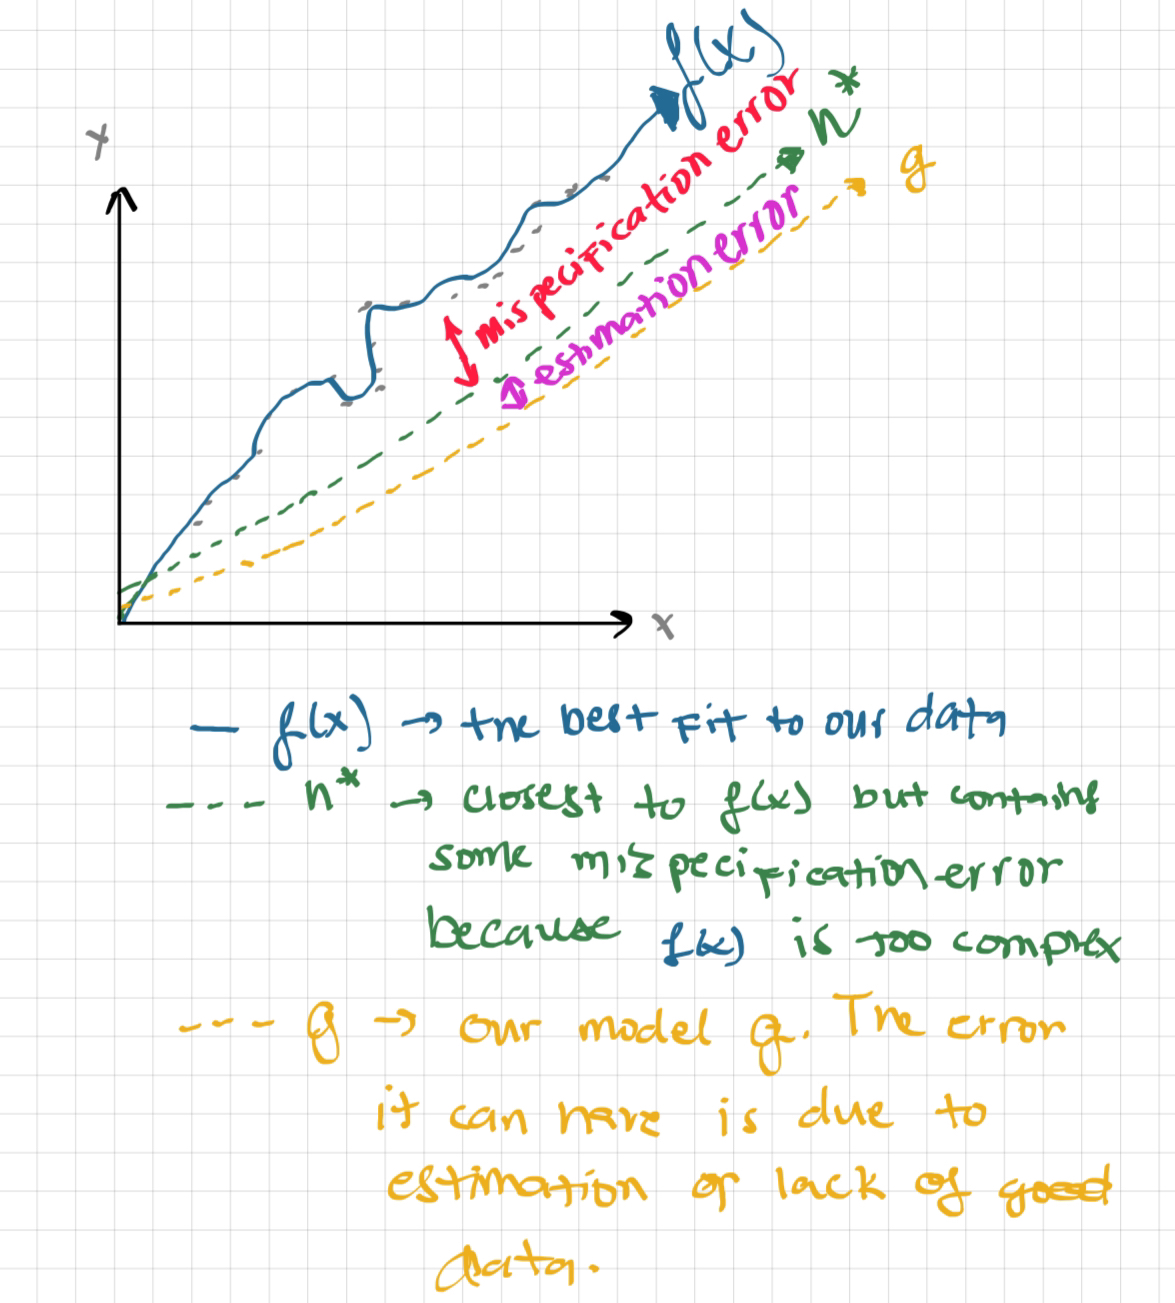 f(x)
Y
h*
g
mispecification error
estimation error
X
— f(x) → the best fit to our data
- - - h* → closest to f(x) but contains
some mispecification error
because f(x) is too complex
- - - g → our model g. The error
it can have is due to
estimation or lack of good
data.